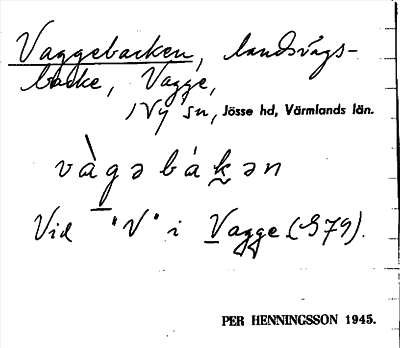 Vaggebacken, landsvägs-
backe, Vagge,
Ny sn, Jösse hd, Värmlands län.
vàgə bákən
Vid "V" i Vagge (S79).
PER HENNINGSSON 1945.